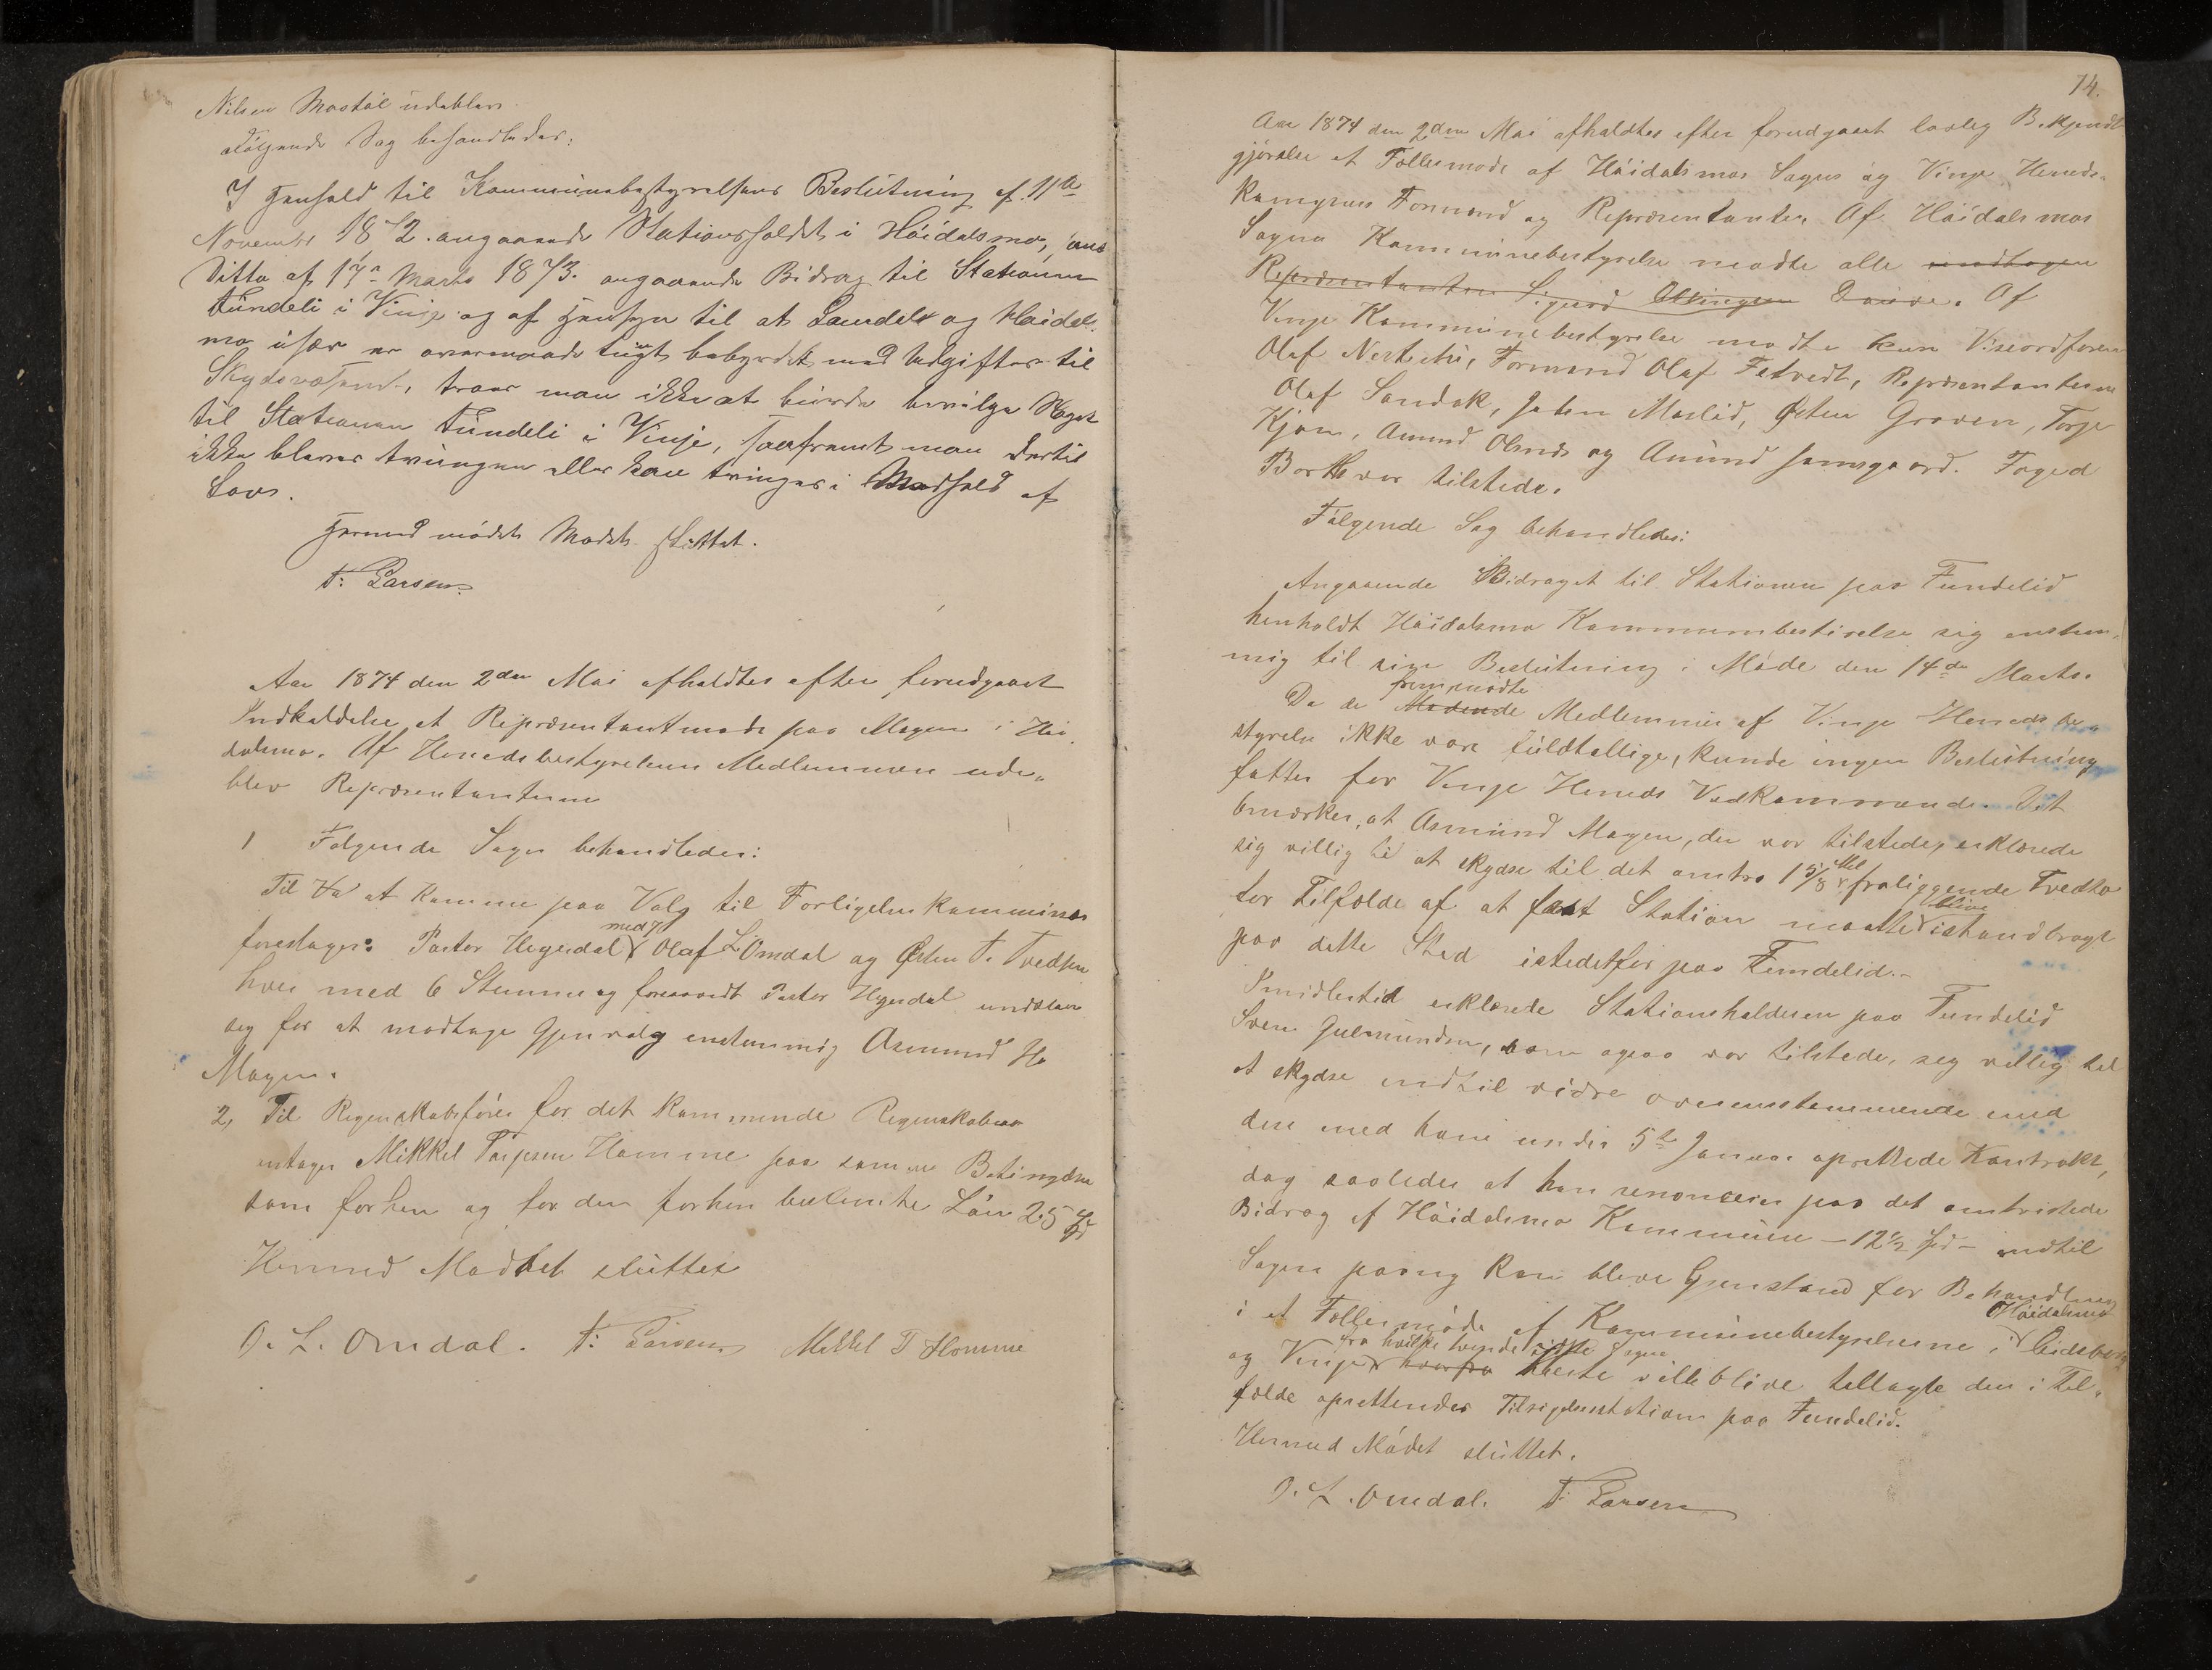 Nilsen Mostøl udeblev.
Følgende Sag behandledes:
I Henhold til Kommunebestyrelsens Beslutning af 11te
November 1872 angaaende Stationsholdet i Høidalsmo, 
Ditto af 17de Marts 1873 angaaende Bidrag til Stationen
Fundeli i Vinje og af Hensyn til at Laurdal og Høidals-
mo især er overmaade tungt bebyrdet med Udgifter til
Skydsvæsenet, troer man ikke at burde bevilge Noget
til Stationen Fundeli i Vinje, saafremt man dertil
ikke bliver tvungen eller kan tvinges i Medhold af
Lov.
Hermed mødet Mødet sluttet.
T: Larsen
Aar 1874 den 2den Mai afholdtes efter forudgaaet
Indkaldelse et Repræsentantmøde paa Mogen i Høi
dalsmo. Af Herredsbestyrelsens Medlemmer ude-
blev Repræsentanterne
1 Følgende Sager behandledes:
Til at komme paa Valg til Forligelseskommissær
foreslages: Pastor Hegerdal med 7, Olaf L Omdal og Østen T. Tvedten
hver med 6 Stemmer og forsaavidt Pastor Hegerdal undslaar
sig for at modtage Gjenvalg enstemmig Asmund H.
Mogen.
2, Til Regnskabsfører for det kommende Regnskabsaar
antages Mikkel Torjesen Homme paa samme Betingelser
som forhen og for den forhen bestemte Løn 25 Spd
Hermed Mødtet sluttet
O. L. Omdal. T: Larsen Mikkel T Homme
74.
Aar 1874 den 2den Mai afholdtes efter forudgaaet lovlig Bekjendt
gjørelse et Fællesmøde af Høidalsmos Sogns og Vinje Herreds-
Formænd og Repræsentanter. Af Høidalsmos
Sogns Kommunebestyrelse mødte alle undtagen
Repræsentanten Sigurd . Af
Vinje Kommunebestyrelse mødte kun Viseordfører
Olaf Nestestu, Formand Olaf Fetvedt, Repræsentanterne
Olaf Sandok, John Moslid, Østen Groven, Torje
Kjøm, Amund Olsnes og Amund Jamsgaard. Foged
Borth var tilstede.
Følgende Sag behandledes:
Angaaende Bidraget til Stationen paa Fundelid
henholdt Høidalsmo Kommunebestirelse sig enstem-
mig til sin Beslutning i Møde den 14de Marts.
Da de Mødende fremmødte Medlemmer af Vinje Herreds be-
styrelse ikke vare fuldtallige, kunde ingen Beslutning
fattes for Vinje Herreds Vedkommende. Det
bmærkes, at Asmund Mogen, der var tilstede, erklærede
sig villig til at skydse til det omtre 1 5/8 Mil fraliggende Tvedto
for Tilfælde af at fast Station maatte blive istandbragt
paa dette Sted istedetfor paa Fundelid.-
Imidlertid erklærede Stationsholderen paa Fundelid
Sven Gulmundsen, som ogsaa var tilstede, sig villig til
at skydse indtil vidre overensstemmende med
den med ham under 5te Januar oprettede Kontrakt,
dog saaledes at han renoncerer paa det omtvistede
Bidrag af Høidalsmo Kommune - 12½ Spd - indtil
Sagen paany kan blive Gjenstand for Behandling
i et Fællesmøde af Kommunebestyrelserne i Høidalsmo Eidsborg
og Vinje hvorfra fra hvilke tvende sidste Sogne Heste ville blive tillagte den i Til-
fælde oprettendes Tilsigelsestation paa Fundelid.
Hermed Mødet sluttet.
O. L. Omdal. T: Larsen